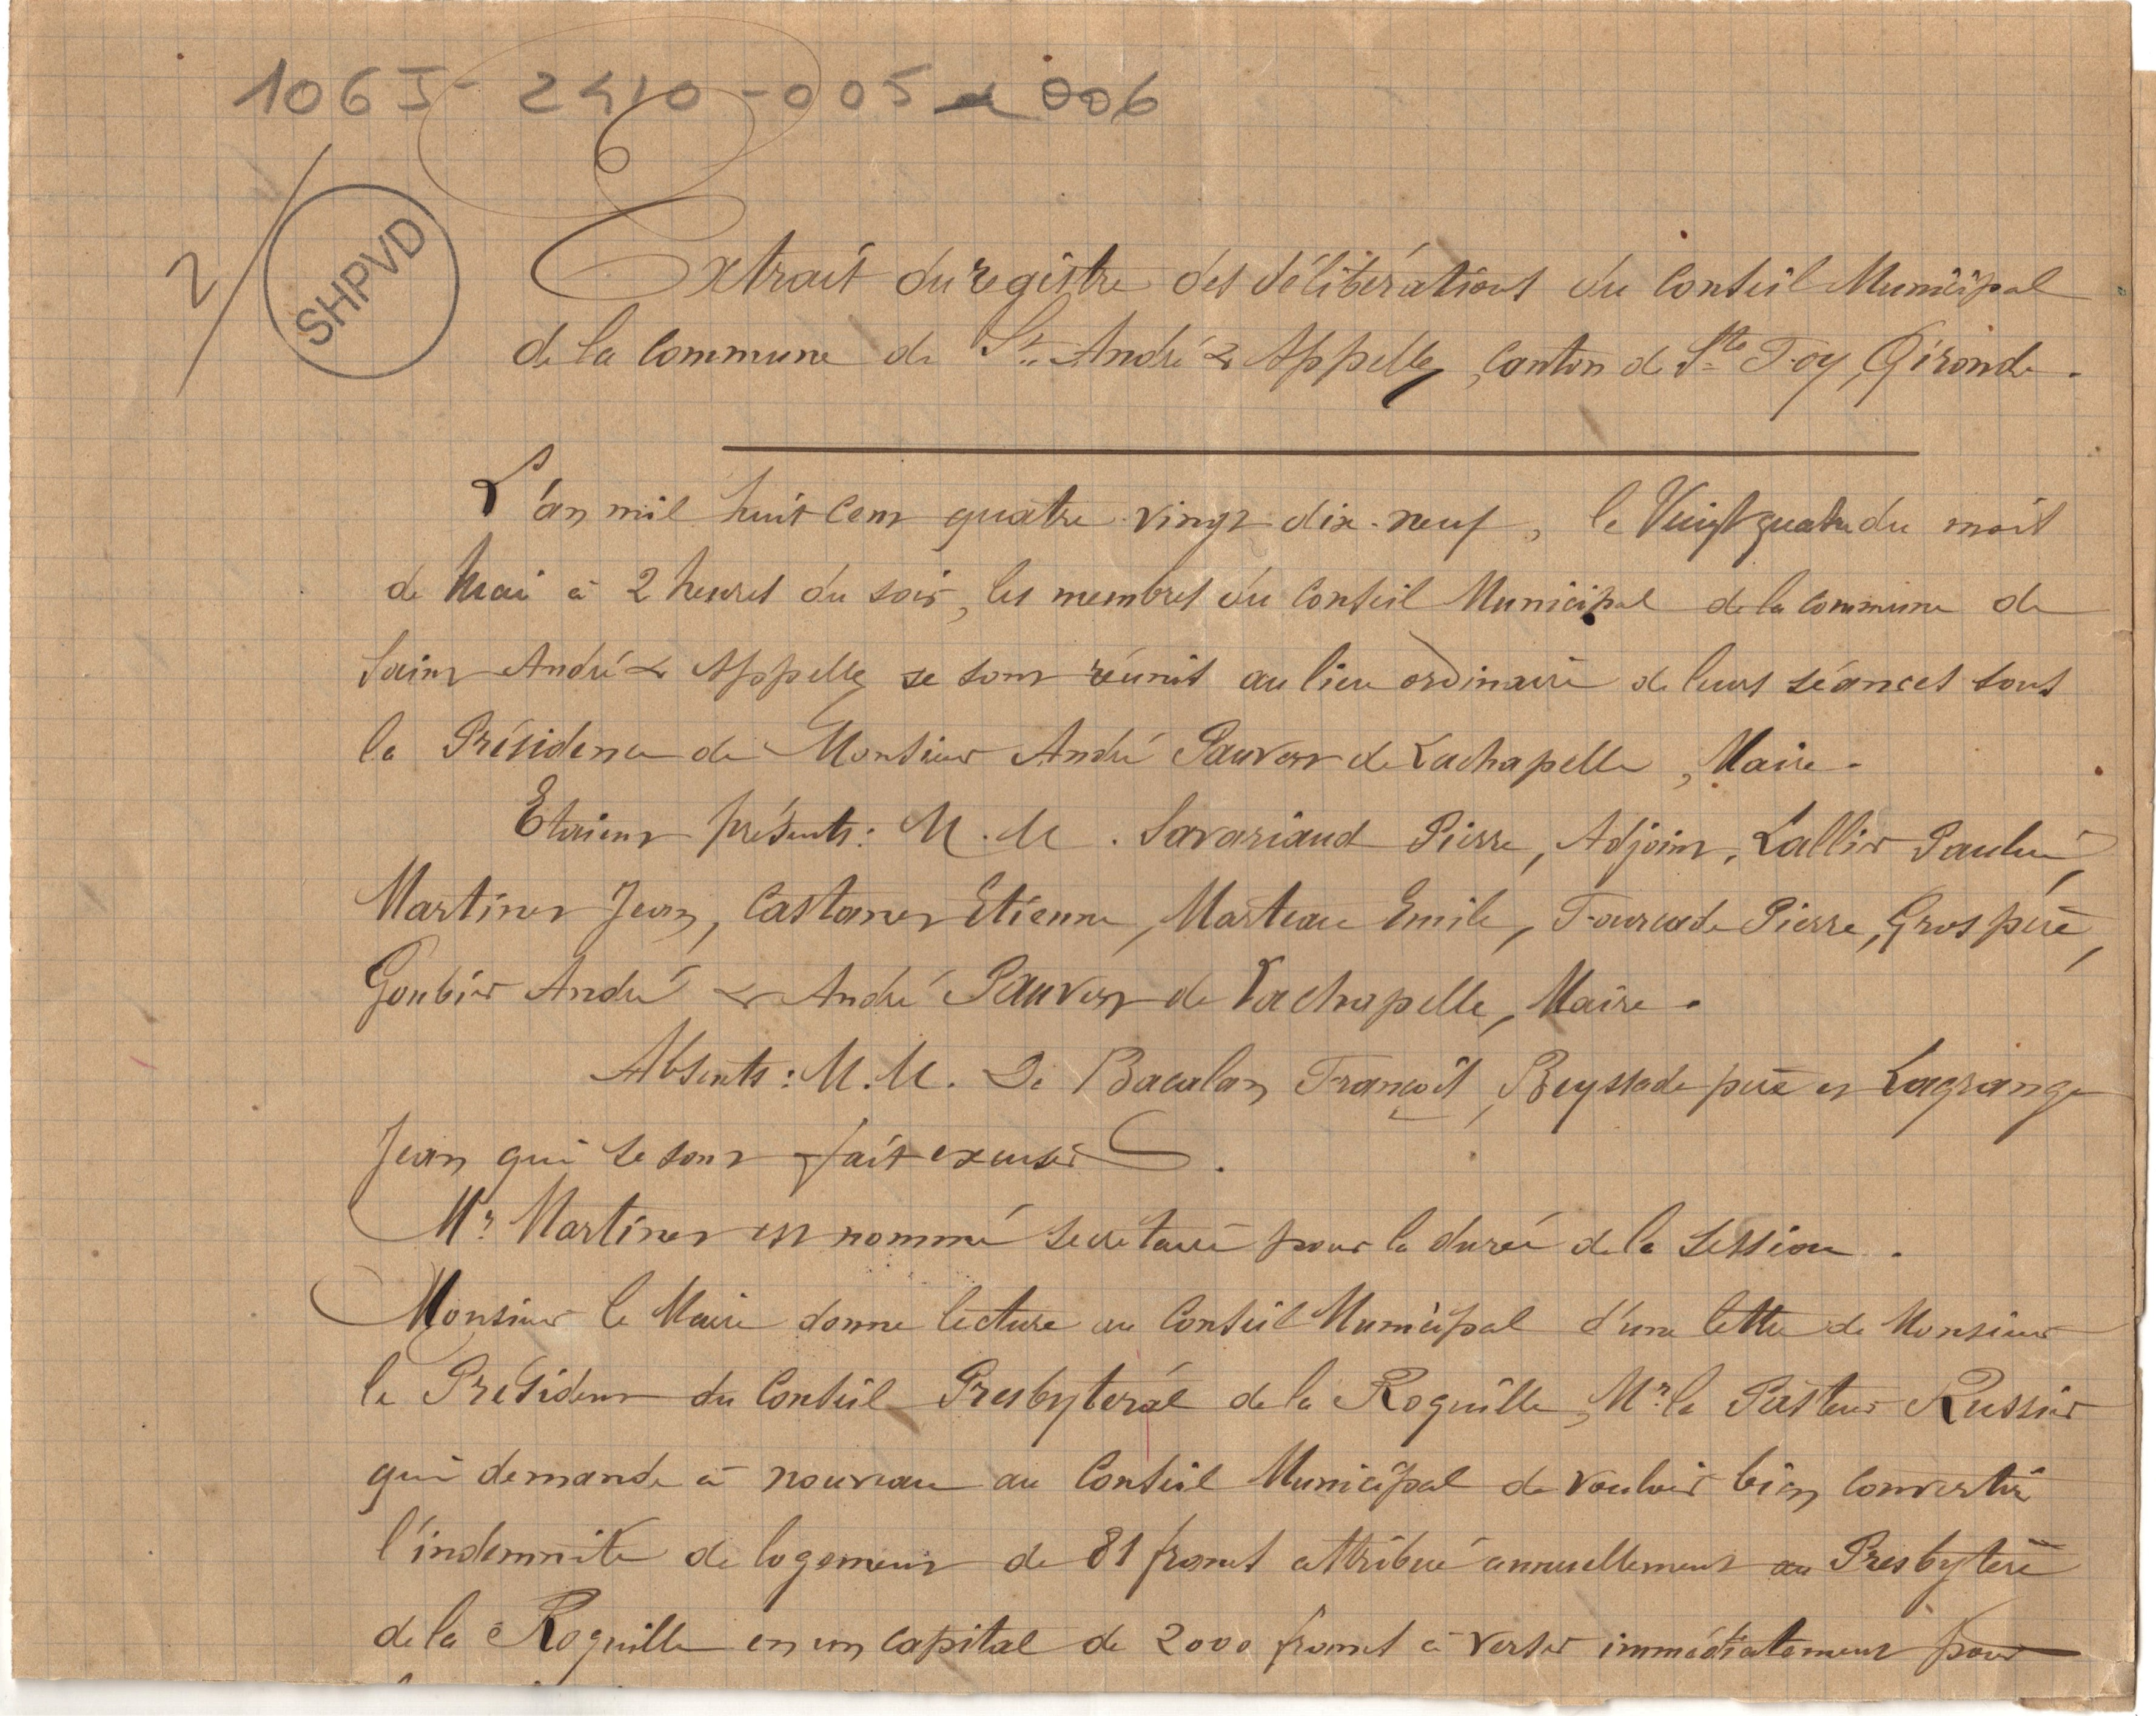 106J - 2410 - 005 à 006
2/
SHPVD
Extrait du registre des délibérations du Conseil Municipal
de la commune de St. André & Appelles, canton de Ste Foy, Gironde.
L'an mil huit cent quatre vingt dix-neuf, le Vingt quatre du mois
de Mai à 2 heures du soir, les membres du Conseil Municipal de la commune de
Saint André & Appelles se sont réunis au lieu ordinaire de leurs séances sous
la Présidence de Monsieur André Pauvert de Lachapelle, Maire.
Etaient présents : M.M. Savariaud Pierre, Adjoint, Lallier Paulin,
Martinet Jean, Castanet Etienne, Marteau Emile, Fourcade Pierre, Gros père,
Goubier André et André Pauvert de Lachapelle, Maire.
Absents : M.M. De Bacalan François, Reyssade père et Lagrange
Jean qui se sont fait excuser.
Mr Martinet est nommé secrétaire pour la durée de la session.
Monsieur le Maire donne lecture au Conseil Municipal d'une lettre de Monsieur
le Président du Conseil Presbytéral de la Roquille, Mr le Pasteur Russier
qui demande à nouveau au Conseil Municipal de vouloir bien convertir
l'indemnité de logement de 81 francs attribué annuellement au Presbytère
de la Roquille en un capital de 2000 francs à verser immédiatement pour